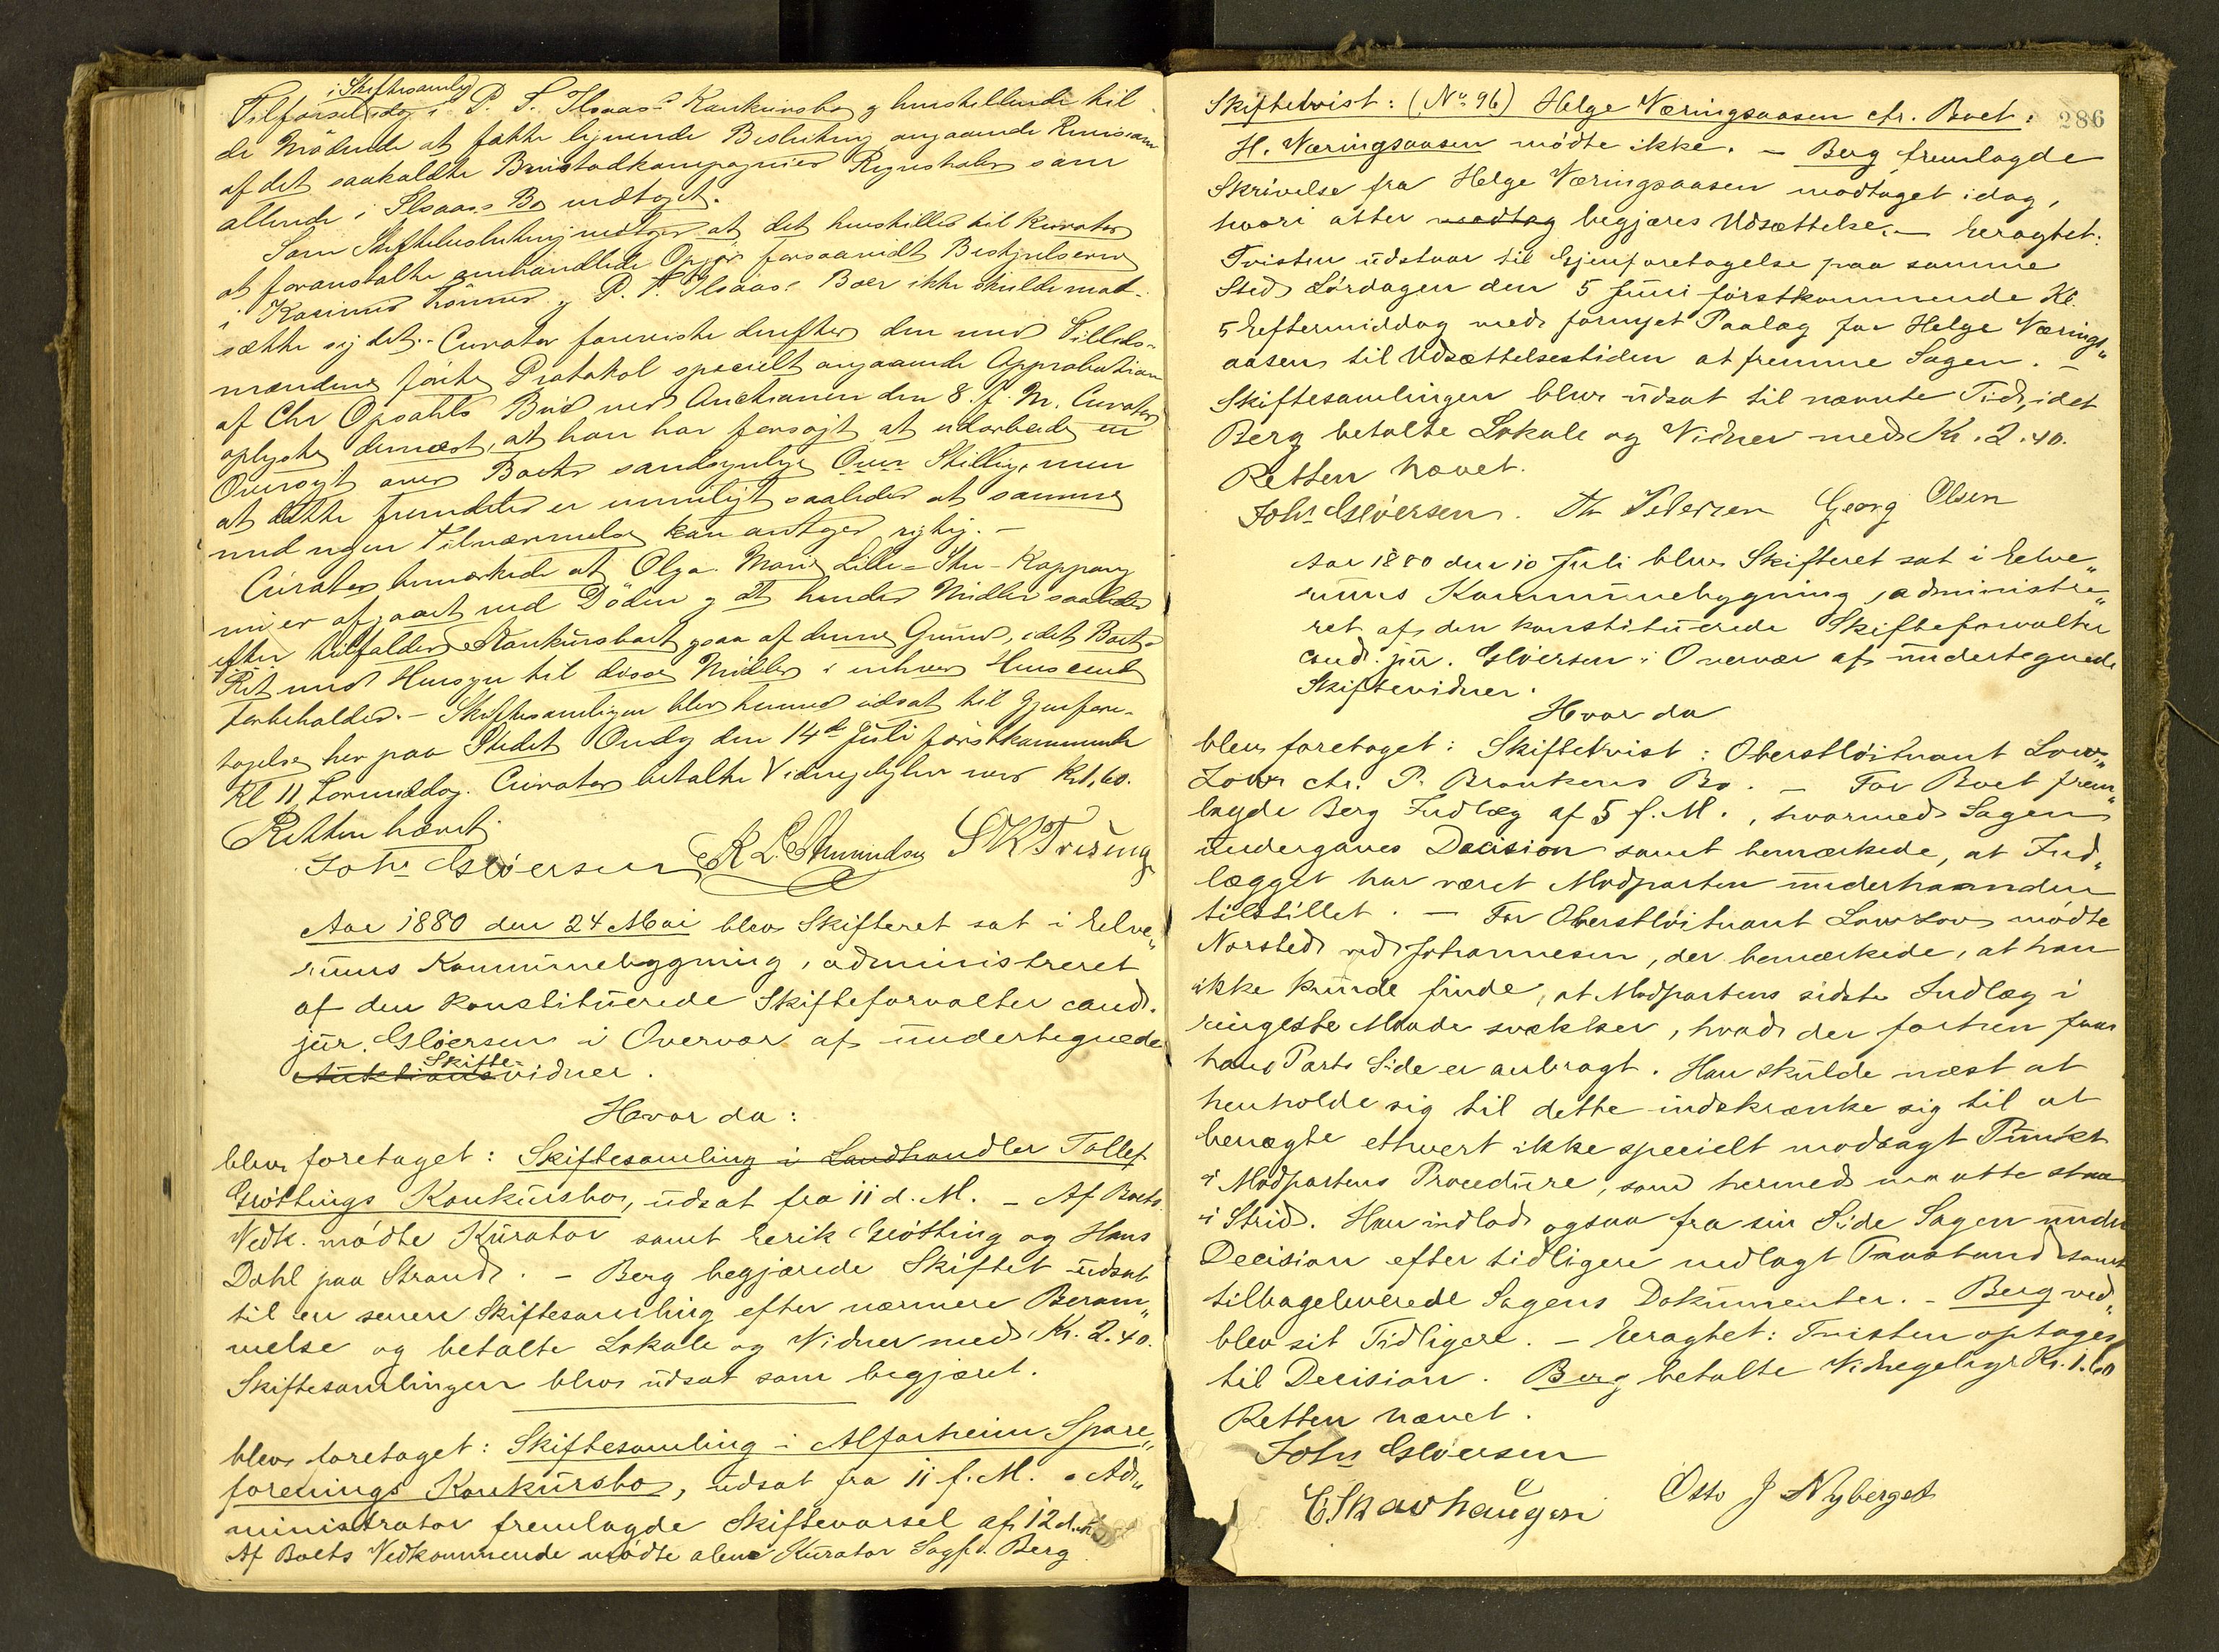 i Skiftesamling
Tilførsel idag i P. T. Ilsaas's Konkursbo g henstillende til
de Mödende at fatte lignende Beslutning angaaende Revision
af det saakaldte Brustadkompagnies Regnskaber som
allerede i Ilsaas Bo vedtaget.
Som Skiftebeslutning vedtoges at det henstilles til Kurator
at foranstalte omhandlede Opgjør forsaavidt Bestyrelserne
i Kasimir og P. T. Ilsaas's Boer ikke skulde mod-
sætte sig det. - Curator foreviste derefter den med Tillids-
mændene førte Protokol specielt angaaende Approbation
af Chr Opsahls Bud ved Auctionen den 8. f. M. Curator
oplyste dernæst, at han har forsøgt at udarbeide en
Oversigt over Boets sandsynlige Stilling, men
at dette fremdeles er umuligt saaledes at samme
med nogen Tilnærmelse kan antages rigtig. -
Curator bemærkede at Olga Marie Lille-Stu-Kappang
nu er afgaaet ved Döden g at hendes Midler saaledes
efter tilfalder Konkursboet ogsaa af denne Grund, idet Boets
Ret med Hensyn til disse Midler i enhver Henseende
forbeholdes. - Skiftesamlingen blev hermed udsat til Gjenfore-
tagelse her paa Stedet Onsdg den 14de Juli førstkommende
Kl 11 Formiddag. Curator betalte Vidnegebyhr med Kr 1,60.
Retten hævet.
Johs Gløersen
Aar 1880 den 24 Mai blev Skifteret sat i Elve„
rums Kommunebygning, administreret
af den konstituerede Skifteforvalter cand.
jur. Gløersen i Overvær af undertegnede
Skifte-
Auktionsvidner.
Hvor da:
blev foretaget: Skiftesamling i Landhandler Tollef
Grøttings Konkursbo, udsat fra 11 d. M. - Af Boets
Vedk. mødte Kurator samt Eerik Grøtting og Hans
Dahl paa Strand. - Berg begjærede Skiftet udsat
til en senere Skiftesamling efter nærmere Beram„
melse og betalte Lokale og Vidner med Kr. 2.40.
Skiftesamlingen blev udsat som begjæret.
blev foretaget: Skiftesamling i Alfarheim Spare„
forenings Konkursbo, udsat fra 11 f. M. - Ad„
ministrator fremlagde Skiftevarsel af 12 d.M.
Af Boets Vedkommende mødte alene Kurator Sagf. Berg
286
Skiftetvist: (No 96) Helge Næringsaasen ctr. Boet.
H. Næringsaasen mødte ikke. - Berg fremlagde
Skrivelse fra Helge Næringsaasen modtaget idag,
hvori atter modtag begjæres Udsættelse. - Eeragtet:
Tvisten udstaar til Gjenforetagelse paa samme
Sted Lørdagen den 5 Juni førstkommende Kl.
5 Eftermiddag med fornyet Paalæg for Helge Nærings„
aasen til Udsættelsestiden at fremme Sagen. -
Skiftesamlingen blev udsat til nævnte Tid, idet
Berg betalte Lokale og Vidner med Kr. 2.40.
Retten hævet.
Johs Gløersen. Th Pedersen Georg Olsen
Aar 1880 den 10 Juli blev Skifteret sat i Eelve„
rums Kommunebygning, administre„
ret af den konstituerede Skifteforvalter
cand. jur. Gløersen i Overvær af undertegnede
Skiftevidner.
Hvor da
blev foretaget: Skiftetvist: Oberstløitnant Low„
zow ctr. P. Braukens Bo. - For Boet frem„
lagde Berg Indlæg af 5 f. M., hvormed Sagen
undergaves Decision samt bemærkede, at Ind„
lægget har været Modparten underhaanden
tilstillet. - For Oberstløitnant Lowzow mødte
Norsted ved Johannesen, der bemærkede, at han
ikke kunde finde, at Modpartens sidste Indlæg i
ringeste Maade svækker, hvad der forhen fra
hans Parts Side er anbragt. Han skulde næst at
henholde sig til dette indskrænke sig til at
benægte ethvert ikke specielt modsagt Punkt
i Modpartens Procedure, som hermed maatte staa
i Strid. Han indlod ogsaa fra sin Side Sagen under
Decision efter tidligere nedlagt Paastand samt
tilbageleverede Sagens Dokumenter. - Berg ved„
blev sit Tidligere. - Eeragtet: Tvisten optages
til Decision. Berg betalte Vidnegebyr Kr. 1.60
Retten hævet.
Johs Gløersen
E. Skavhaugen Otto J Nyberget